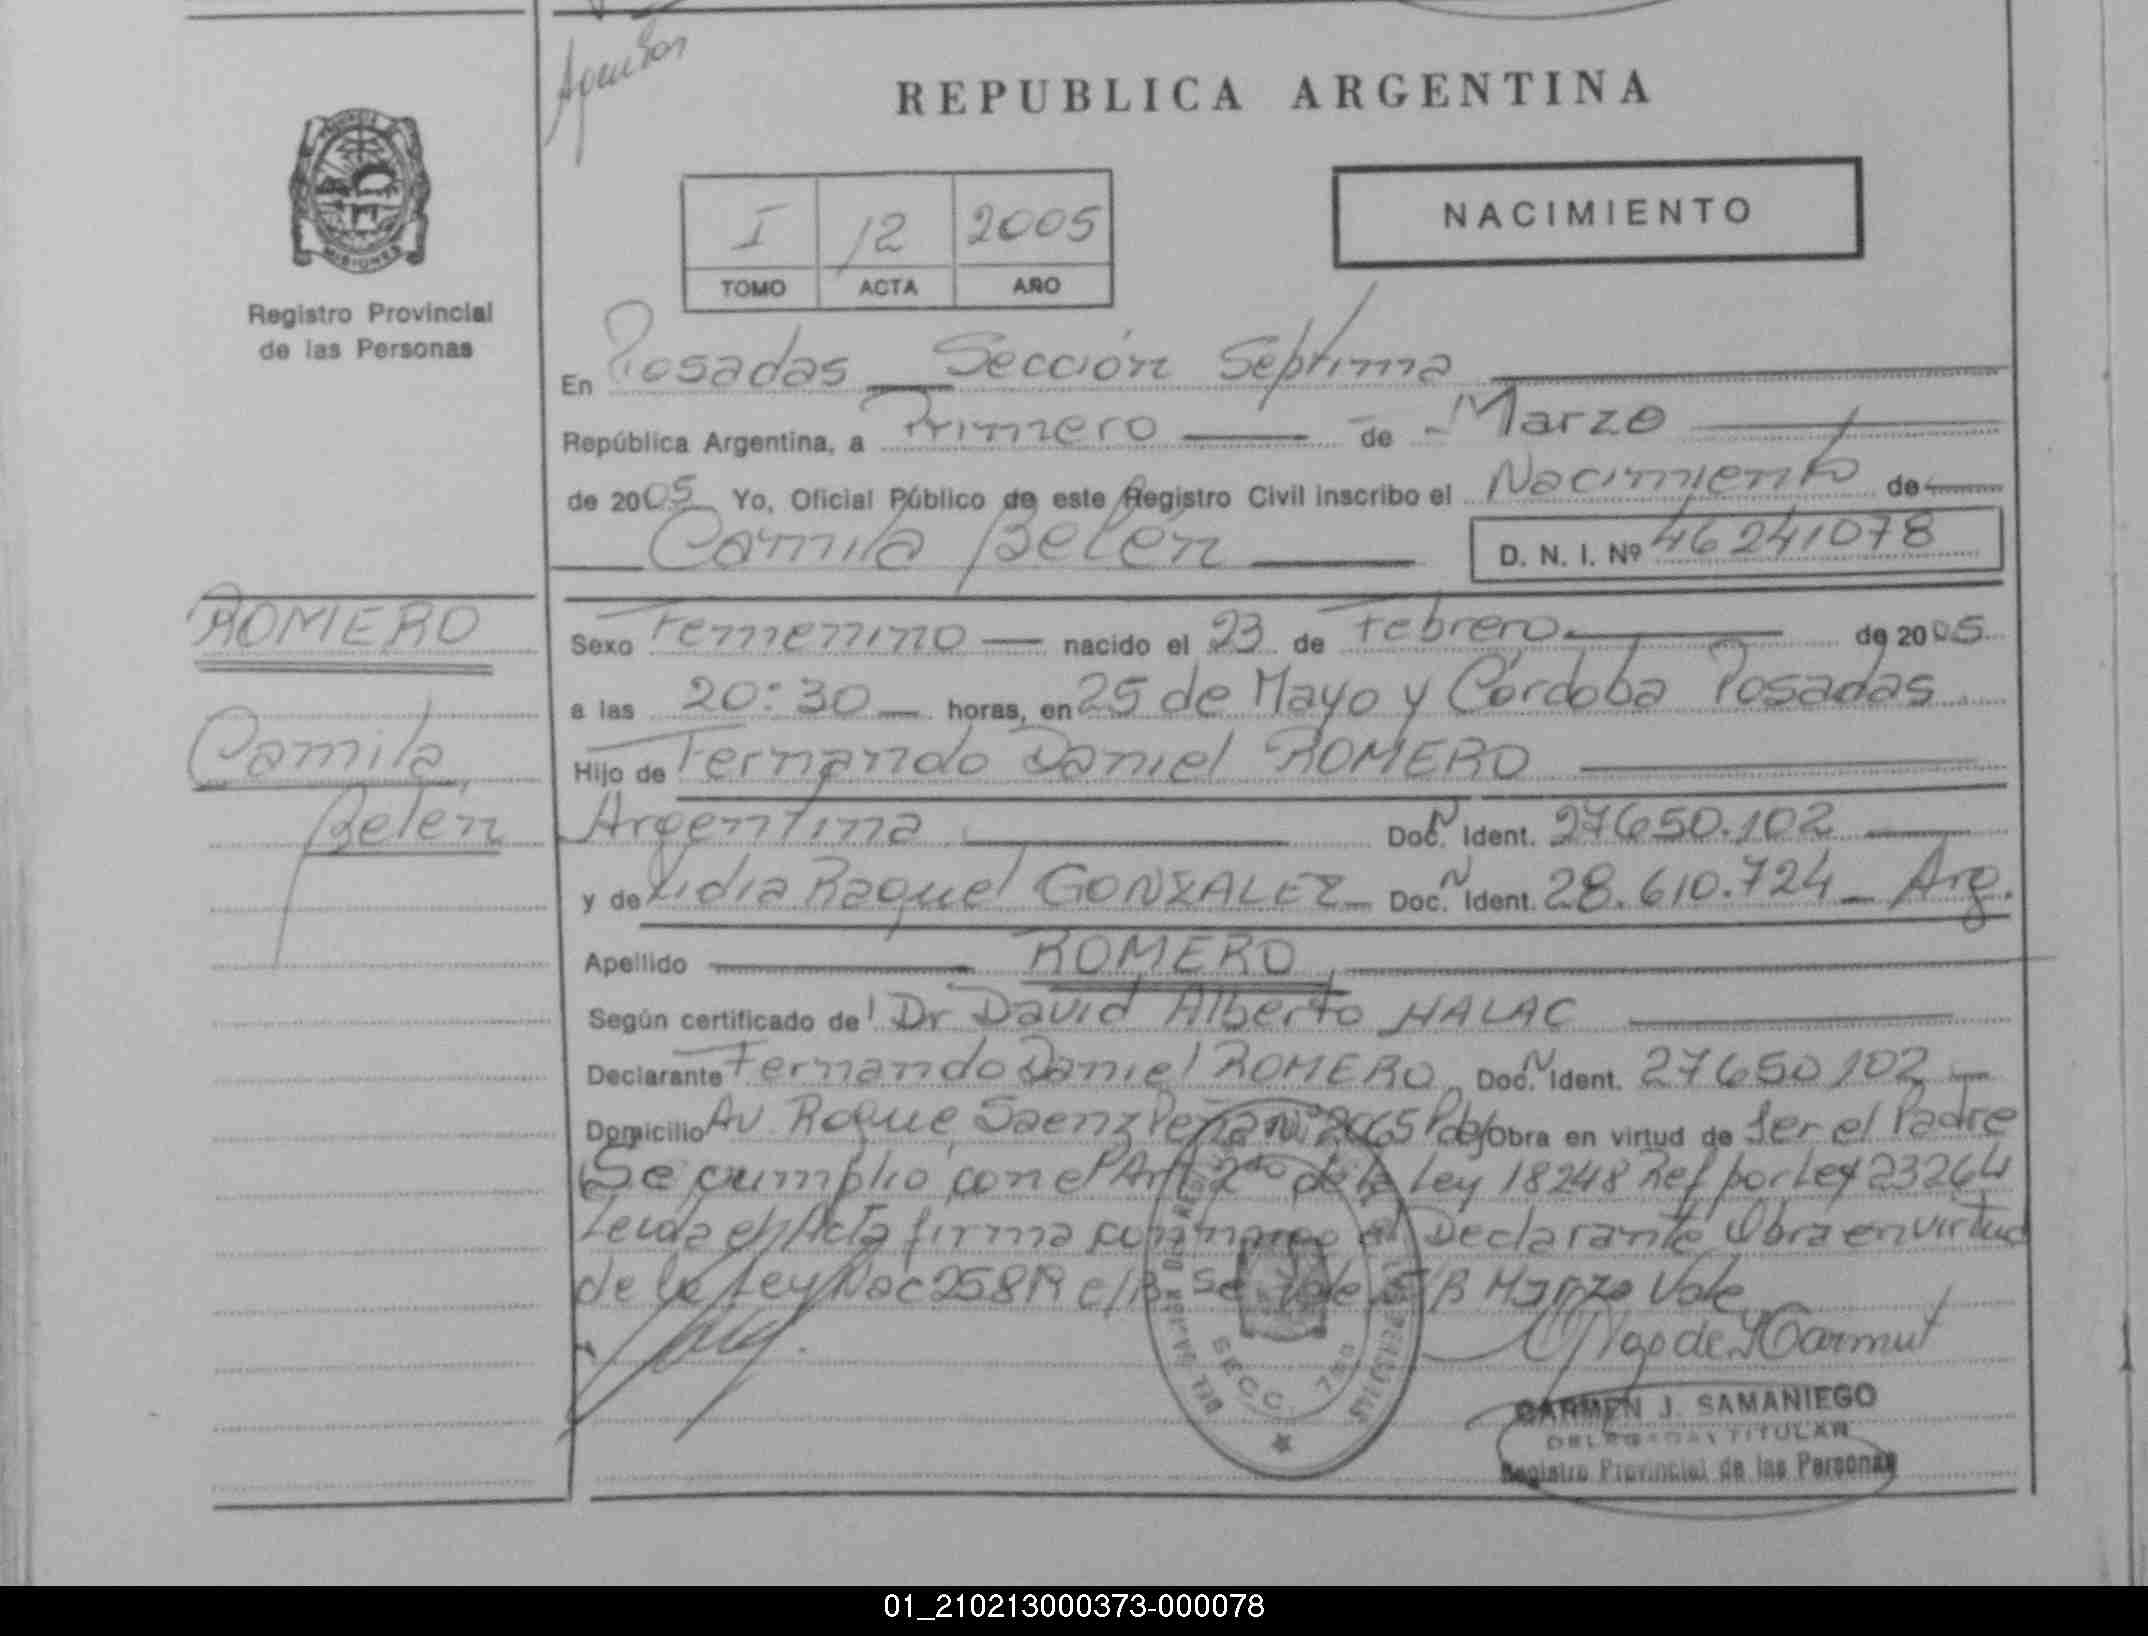 REPUBLICA ARGENTINA
MISIONES
Registro Provincial
de las Personas
I 12 2005
TOMO ACTA AÑO
NACIMIENTO
En Posadas Sección Séptima
República Argentina, a Primero de Marzo
de 2005 Yo, Oficial Público de este Registro Civil inscribo el Nacimiento de
Camila Belén D. N. I. Nº 46241078
ROMERO
Camila
Belén
Sexo Femenino nacido el 23 de Febrero de 2005
a las 20:30 horas, en 25 de Mayo y Córdoba Posadas
Hijo de Fernando Daniel ROMERO
Argentina Doc. Ident. 27650.102
y de Lidia Raquel GONZALEZ Doc. Ident. 28.610.724 Arg.
Apellido ROMERO
Según certificado de Dr David Alberto HALAC
Declarante Fernando Daniel ROMERO Doc. Ident. 27650102
Domicilio Av. Roque Saenz Peña Nº 2065 Pdas obra en virtud de Ser el Padre
Se cumplio con el Art 2do de la Ley 18248 Ref por Ley 23264
Leida el Acta firma conmigo el Declarante Obra en virtud
de la Ley Nac 25819 Marzo Vale
SECC. 7ma
CARMEN J. SAMANIEGO
DELEGADA TITULAR
Registro Provincial de las Personas
01_210213000373-000078